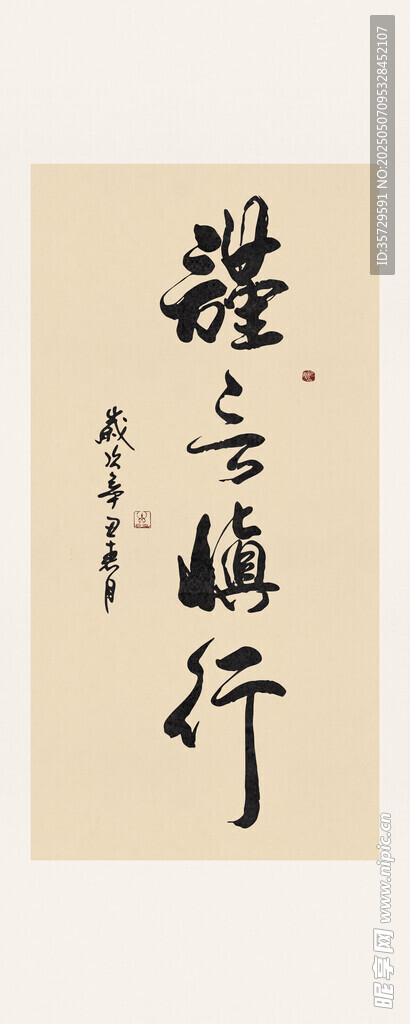 謹言慎行
歲次辛丑春月
ID:35729591 NO:20250507095328452107
昵享网 www.nipic.cn